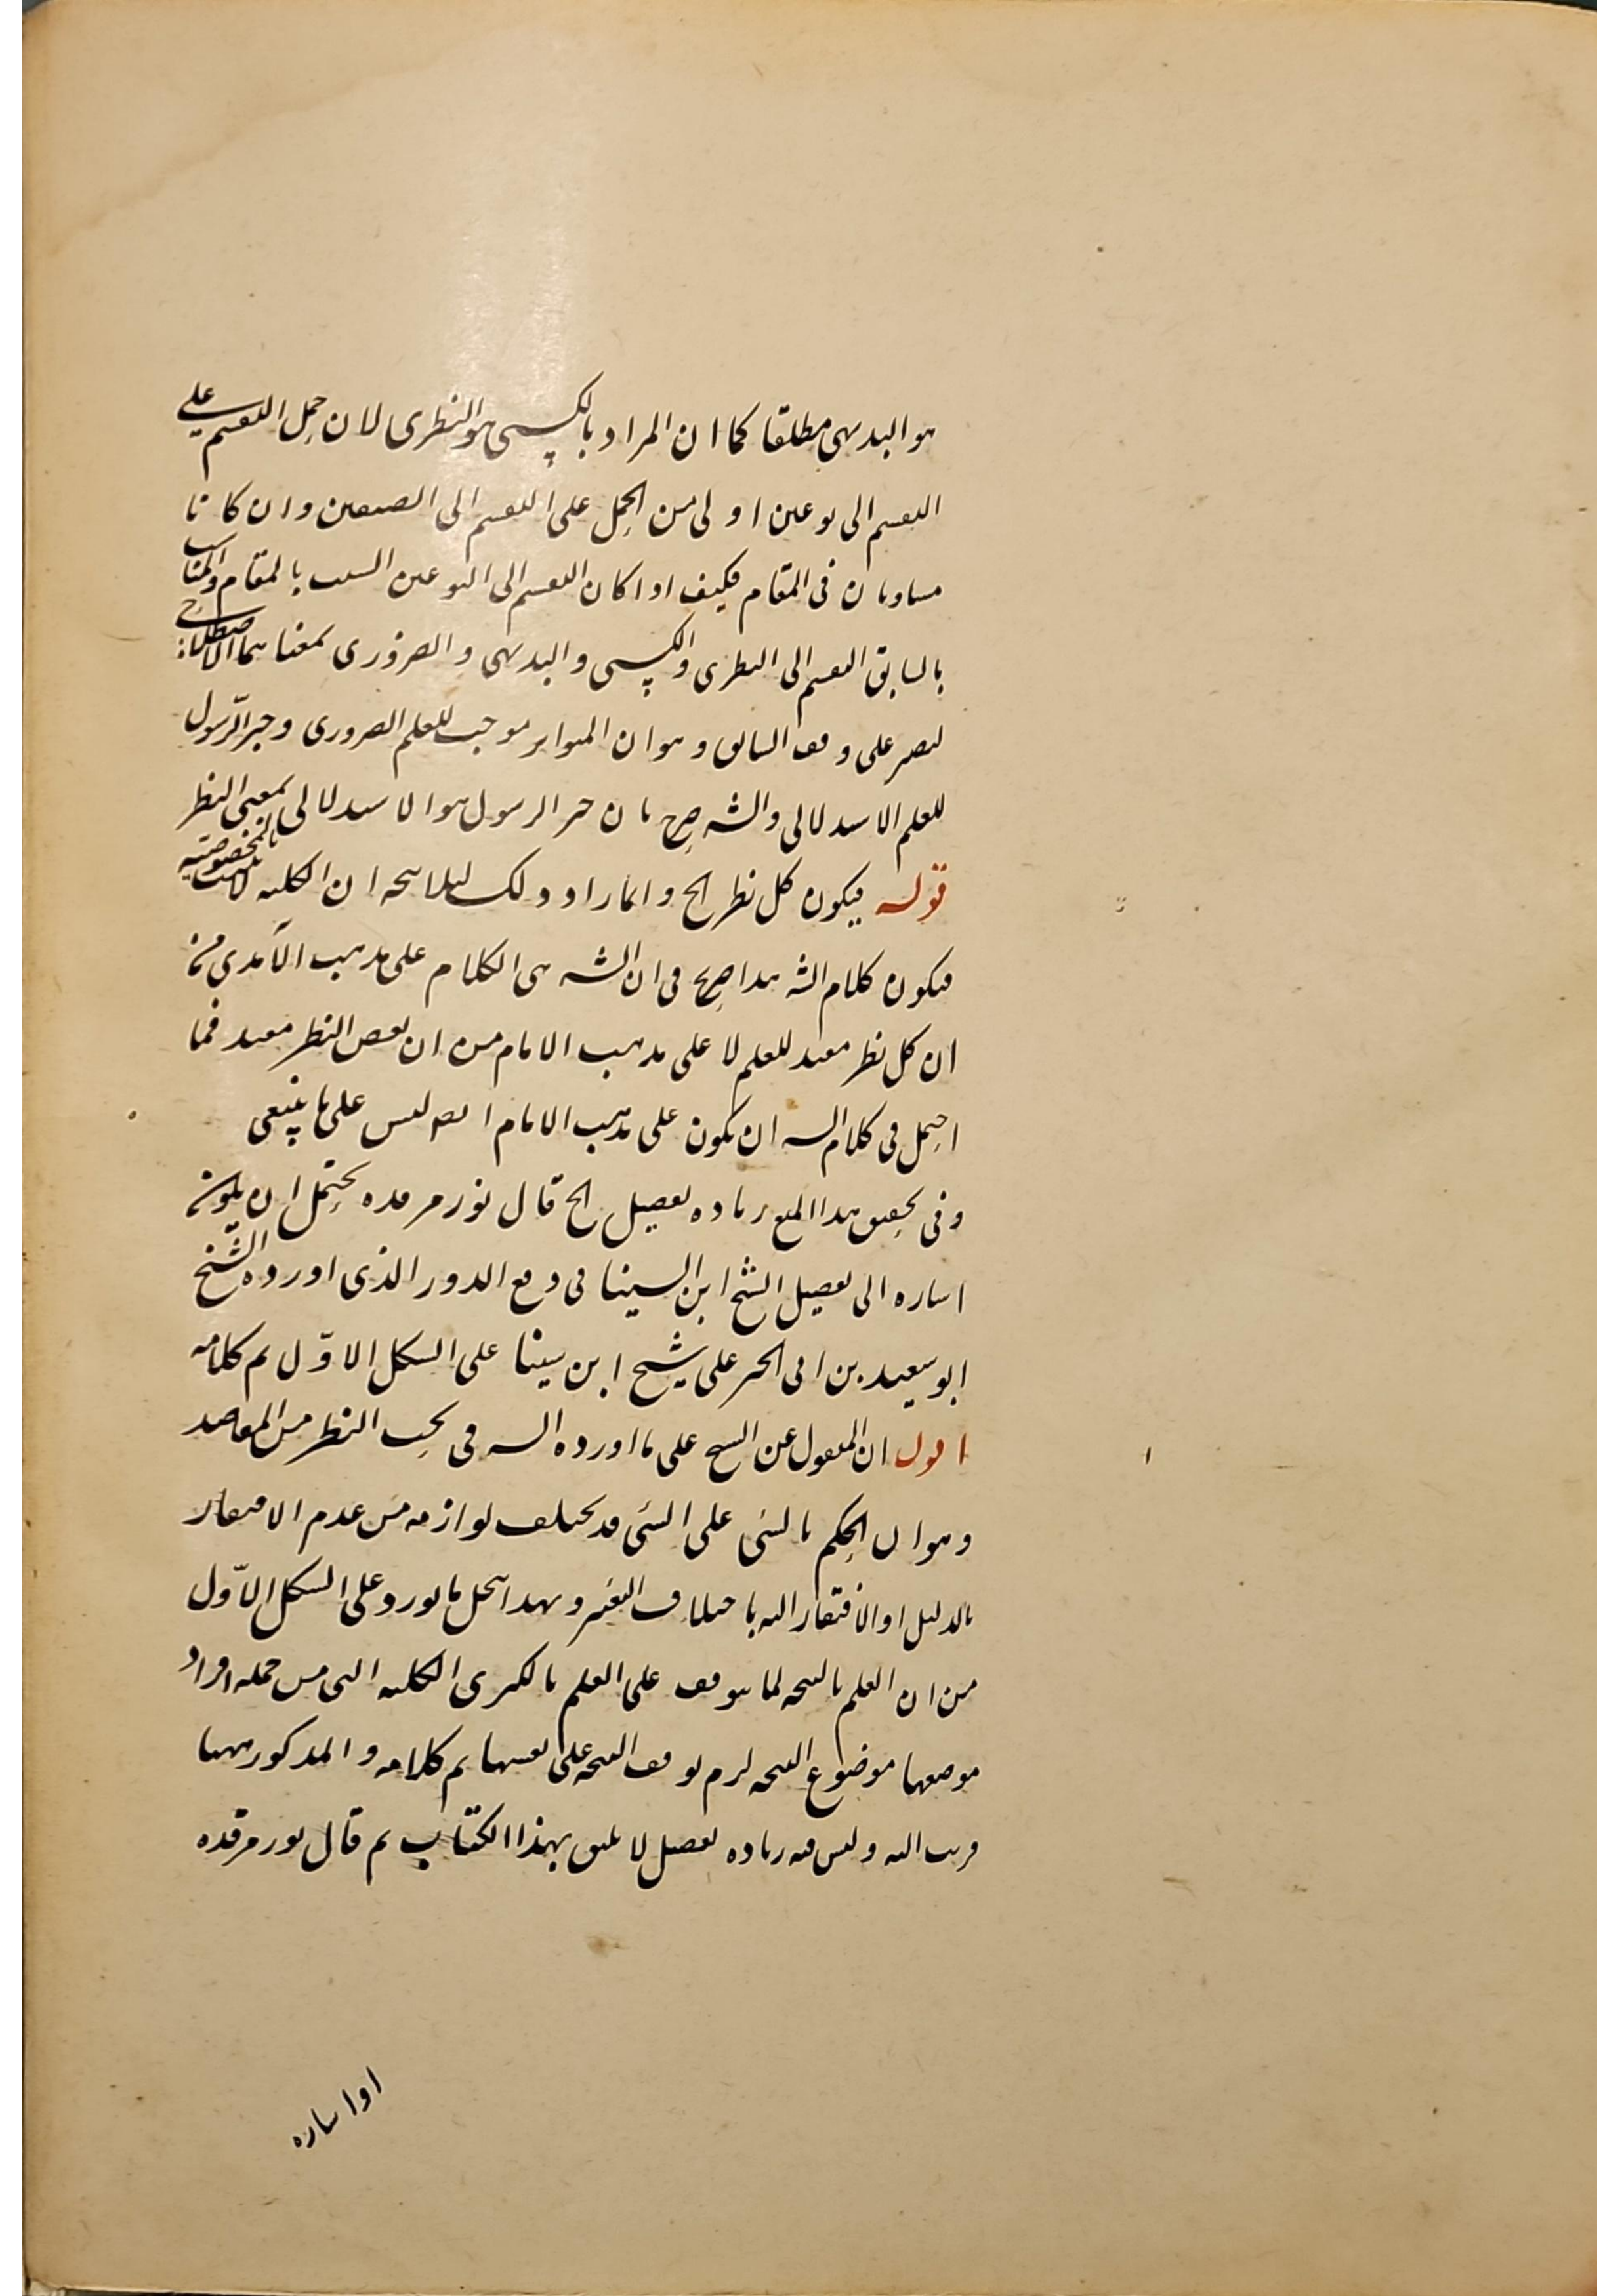 هو البديهى مطلقا كما ان المراد بالكسبى هو النظرى لان حمل التقسيم على
التقسيم الى نوعين اولى من الحمل على التقسيم الى الصنفين وان كانا
متساويان فى المقام فكيف اذا كان التقسيم الى النوعين انسب بالمقام والمناسب
بالسابق التقسيم الى النظرى والكسبى والبديهى والضرورى بمعناهما الاصطلاحى
ليصير على وفق السابق وهو ان المتواتر موجب للعلم الضرورى وخبر الرسول
للعلم الاستدلالى والشه صرح بان خبر الرسول هو الاستدلالى بمعنى النظر
قوله فيكون كل نظر الخ وانما زاد ذلك ليلا يتجه ان الكلية لا تثبت بالخصوصيه
فيكون كلام الشه هذا صريح فى ان الشه بنى الكلام على مذهب الآمدى من
ان كل نظر مفيد للعلم لا على مذهب الامام من ان بعض النظر مفيد فما
احتمل فى كلام الشه ان يكون على مذهب الامام ايضا ليس على ما ينبغى
وفى تحقيق هذا المنع زيادة تفصيل الخ قال نور مرقده يحتمل ان يكون
اشارة الى تفصيل الشيخ ابن السينا فى دفع الدور الذى اورده الشيخ
ابو سعيد بن ابى الخير على شيخ ابن سينا على الشكل الاوّل تم كلامه
اقول ان المنقول عن الشيخ على ما اورده الشه فى بحث النظر من المقاصد
وهو ان الحكم بالشئ على الشئ قد يختلف لوازمه من عدم الافتقار
بالدليل او الافتقار اليه باختلاف التعبير وبهذا ينحل ما يورد على الشكل الاوّل
من ان العلم بالنتيجه لما يتوقف على العلم بالكبرى الكليه التى من جمله افراد
موضعها موضوع النتيجه لزم توقف النتيجه على نفسها تم كلامه والمذكور ههنا
قريب اليه وليس فيه زيادة تفصيل لا يليق بهذا الكتاب ثم قال نور مرقده
او اشاره